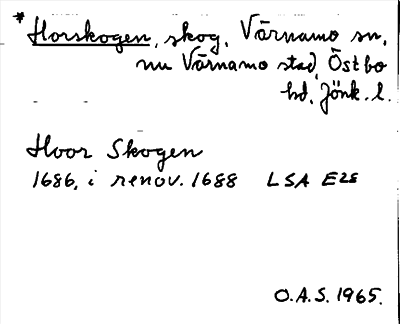 * Horskogen, skog, Värnamo sn,
nu Värnamo stad, Östbo
hd, Jönk. l.
Hoor Skogen
1686, i renov. 1688 LSA E28
O.A.S. 1965.